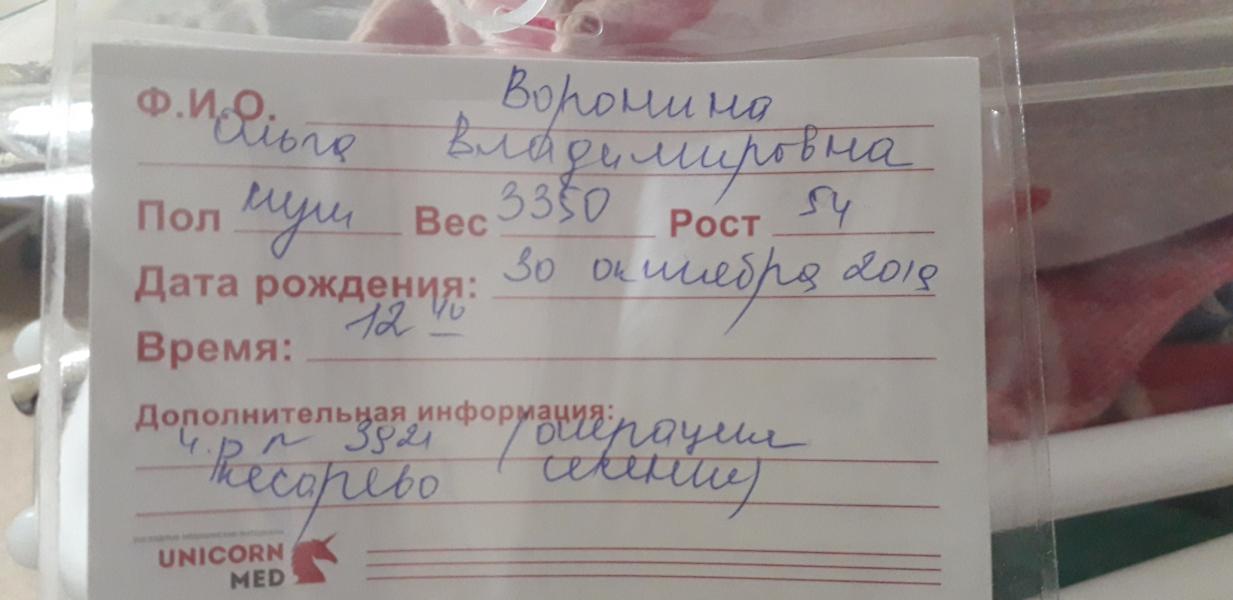 Ф.И.О. Воронина
Ольга Владимировна
Пол муж Вес 3350 Рост 54
Дата рождения: 30 октября 2019
Время: 12 40
Дополнительная информация:
(операция
кесарево сечение)
UNICORN
MED